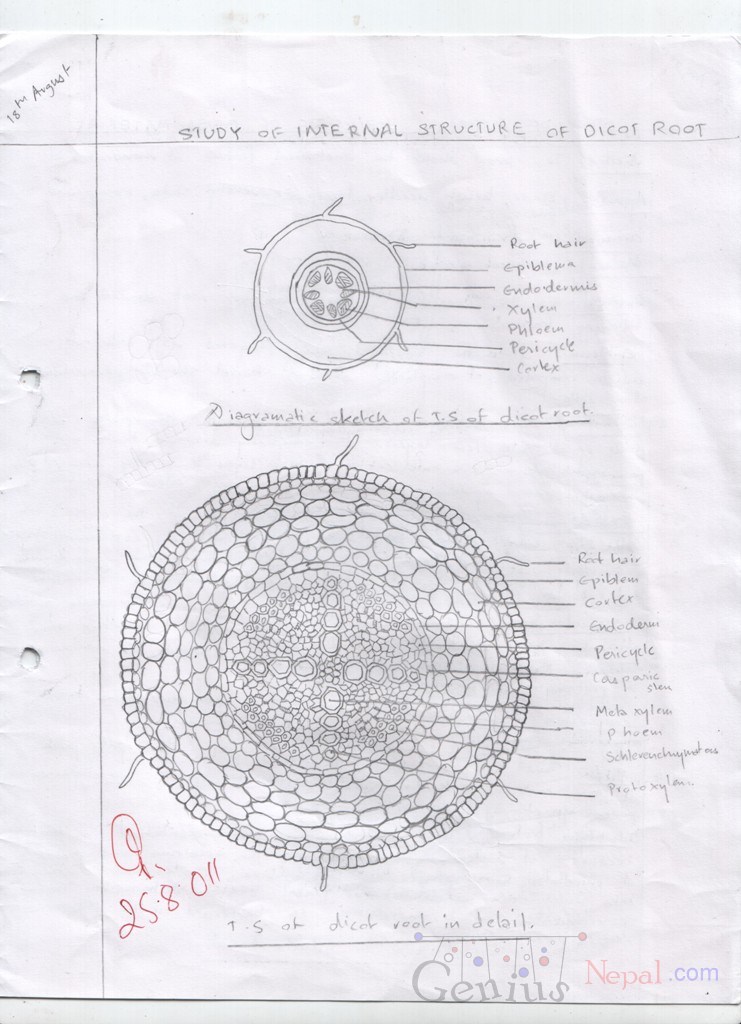 18th August
STUDY OF INTERNAL STRUCTURE OF DICOT ROOT
Root hair
Epiblema
Endodermis
Xylem
Phloem
Pericycle
Cortex
Diagramatic sketch of T.S of dicot root.
Root hair
Epiblem
Cortex
Endodermi
Pericycle
Casparic
Meta xylem
Phoem
Protoxylem
25.8.011
T.S of dicot root in detail.
Genius Nepal.com